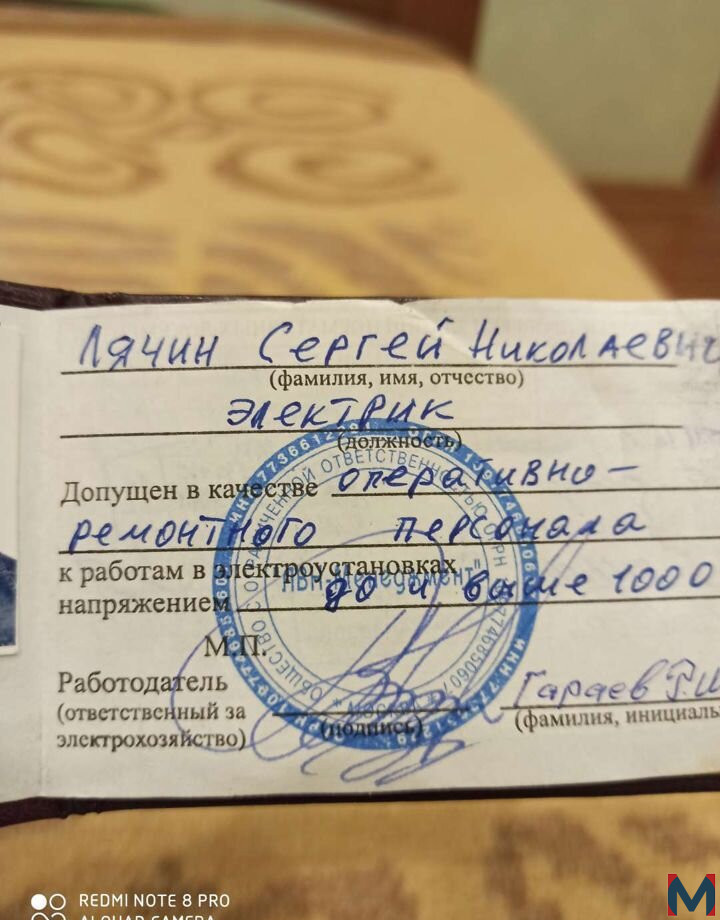 Лячин Сергей Николаевич
(фамилия, имя, отчество)
электрик
(должность)
Допущен в качестве оперативно-
ремонтного персонала
к работам в электроустановках
напряжением до и выше 1000
М.П.
Работодатель
(ответственный за
электрохозяйство)
(подпись)
Гараев Р.Ш
(фамилия, инициалы
ОБЩЕСТВО С ОГРАНИЧЕННОЙ ОТВЕТСТВЕННОСТЬЮ
МОСКВА
REDMI NOTE 8 PRO
AI QUAD CAMERA
M